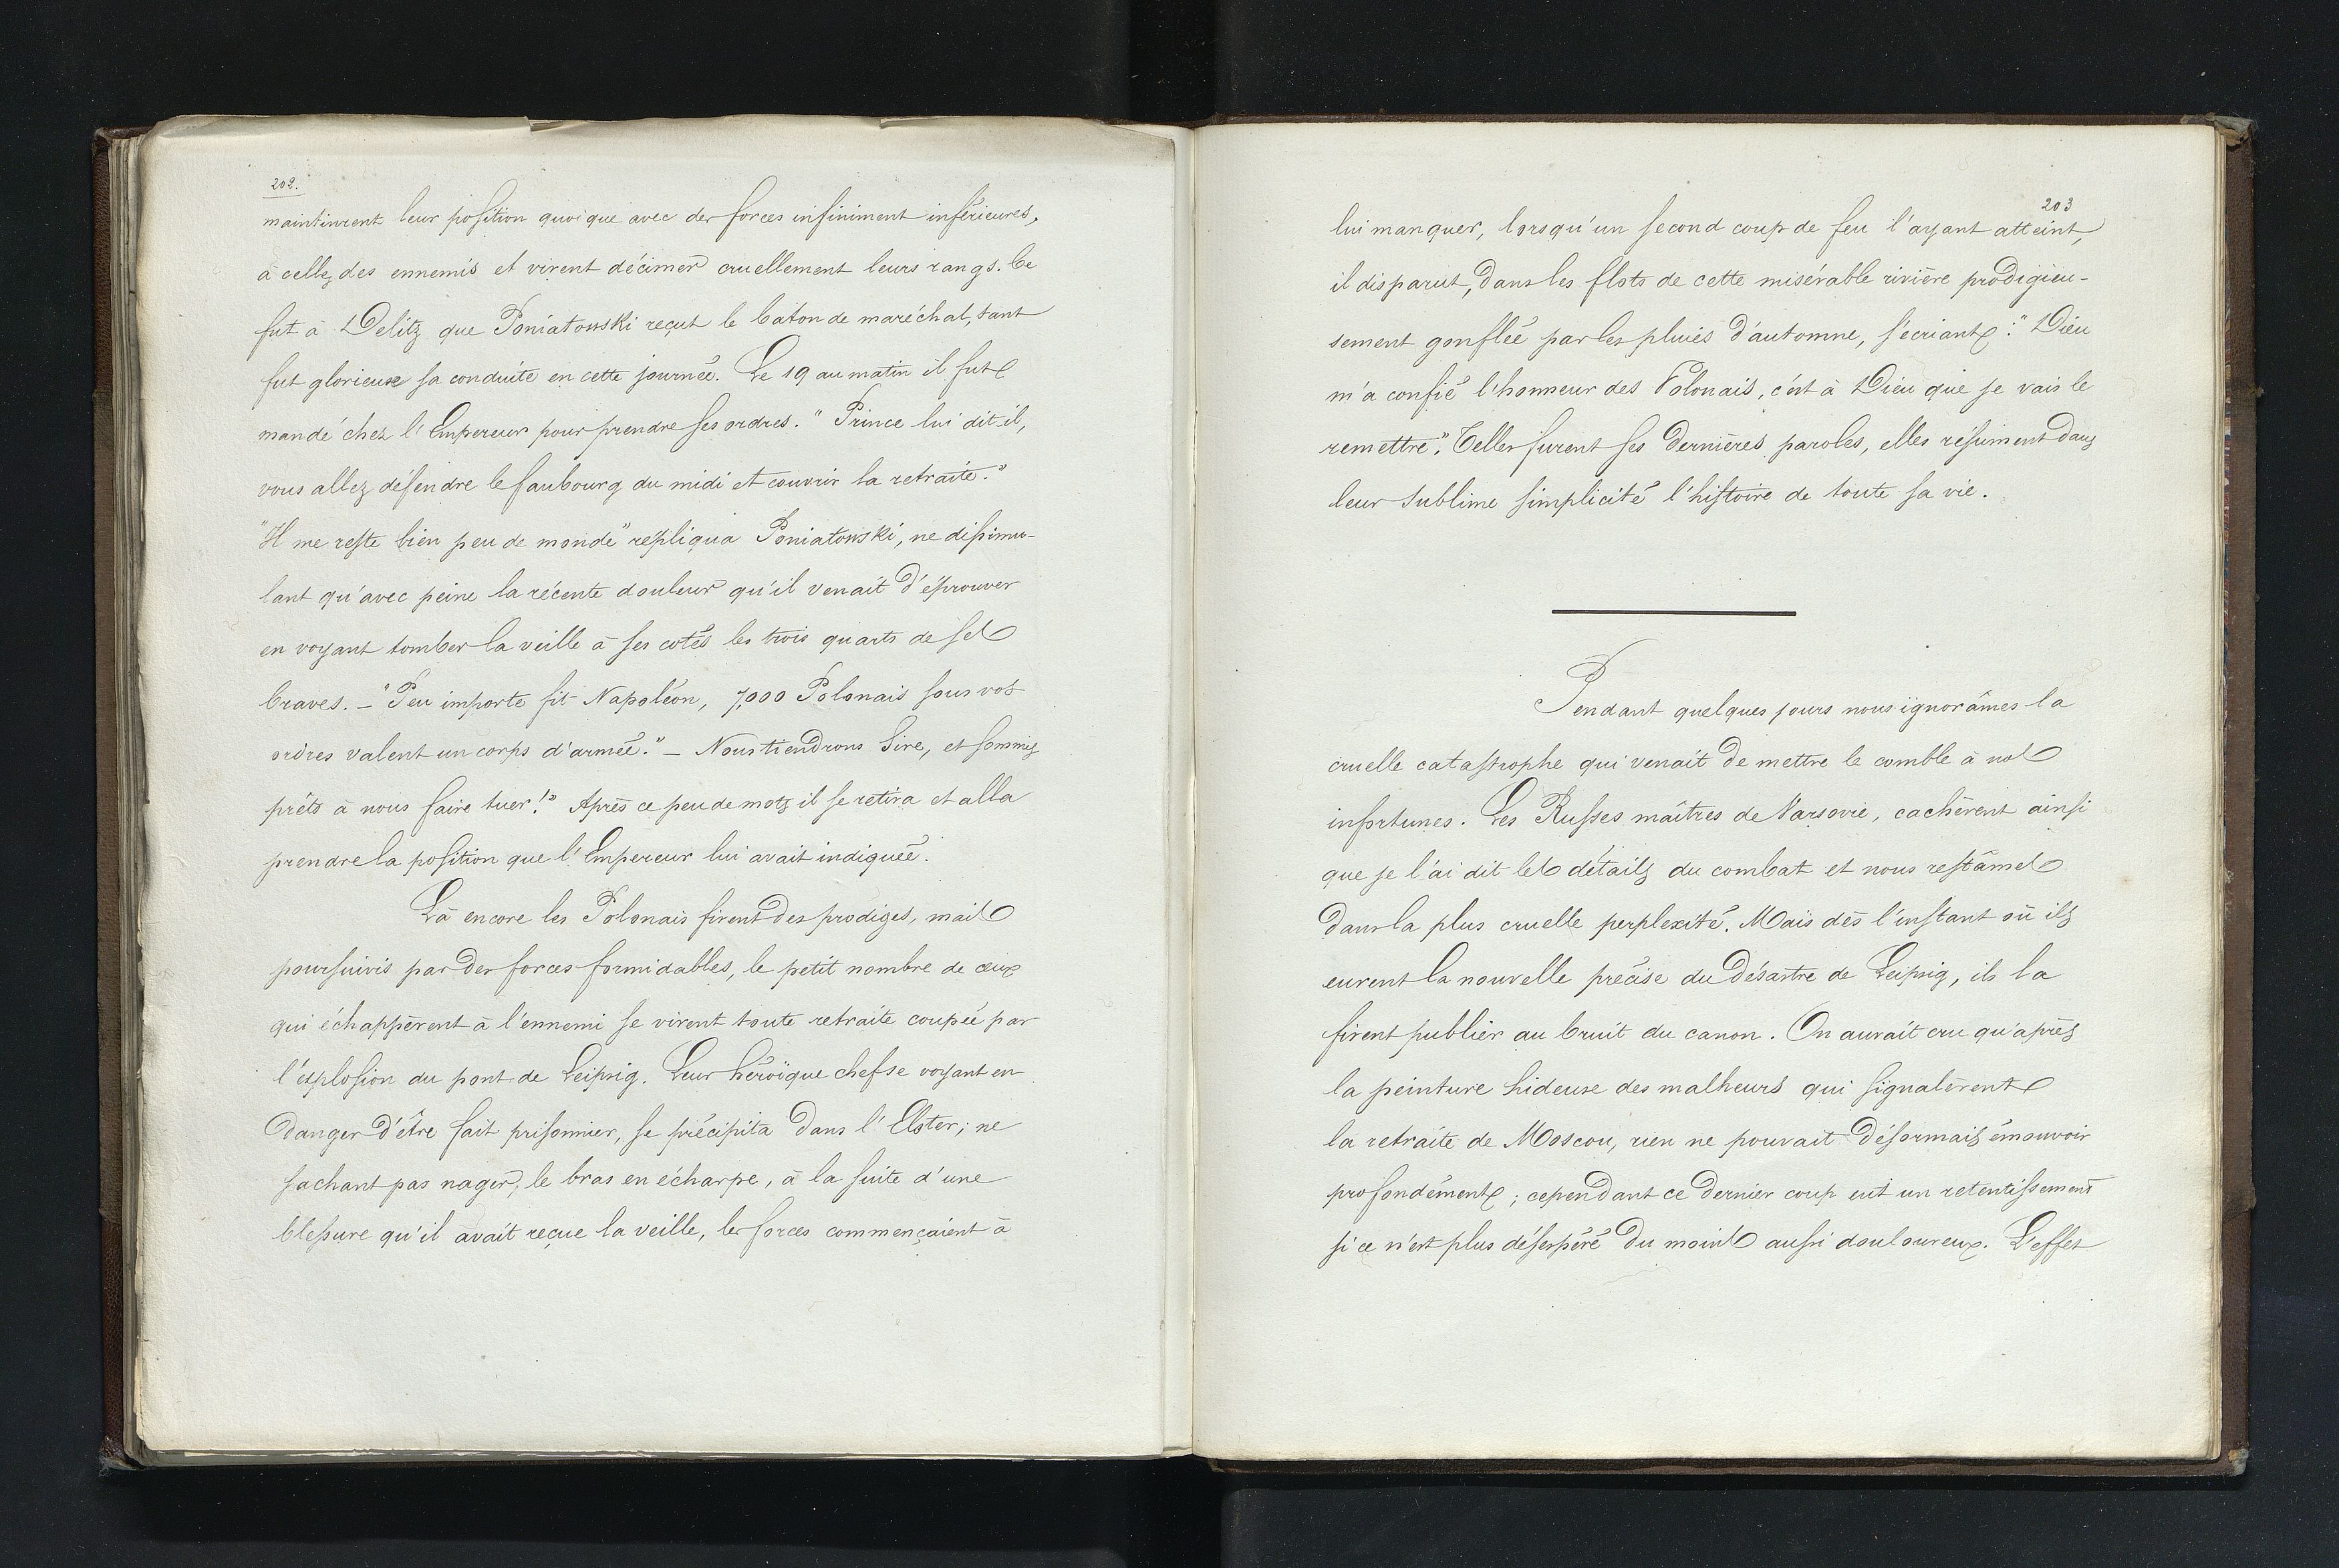 202.
maintinrent leur position quoique avec des forces infiniment inférieures,
à celles des ennemis et virent décimer cruellement leurs rangs. Ce
fut à Delitz que Poniatowski reçut le bâton de maréchal, tant
fut glorieuse sa conduite en cette journée. Le 19 au matin il fut
mandé chez l'Empereur pour prendre ses ordres. "Prince lui dit-il,
vous allez défendre le faubourg du midi et couvrir la retraite."
"Il me reste bien peu de monde" repliqua Poniatowski, ne dissimu-
lant qu'avec peine la récente douleur qu'il venait d'éprouver
en voyant tomber la veille à ses cotés les trois quarts de ses
braves. – "Peu importe fit Napoléon, 7,000 Polonais sous vos
ordres valent un corps d'armée." – Nous tiendrons Sire, et sommes
prêts à nous faire tuer!" Après ce peu de mots il se retira et alla
prendre la position que l'Empereur lui avait indiquée.
Là encore les Polonais firent des prodiges, mais
poursuivis par des forces formidables, le petit nombre de ceux
qui échappèrent à l'ennemi se virent toute retraite coupée par
l'explosion du pont de Leipsig. Leur héroïque chef se voyant en
danger d'être fait prisonnier, se précipita dans l'Elster; ne
sachant pas nager, le bras en écharpe, à la suite d'une
blessure qu'il avait reçue la veille, les forces commençaient à
203
lui manquer, lorsqu'un second coup de feu l'ayant atteint,
il disparut, dans les flots de cette misérable rivière prodigieu-
sement gonflée par les pluies d'automne, s'écriant: "Dieu
m'a confié l'honneur des Polonais, c'est à Dieu que je vais le
remettre". Telles furent ses dernières paroles, elles résument dans
leur sublime simplicité l'histoire de toute sa vie.
Pendant quelques jours nous ignorâmes la
cruelle catastrophe qui venait de mettre le comble à nos
infortunes. Les Russes maîtres de Varsovie, cachèrent ainsi
que je l'ai dit les détails du combat et nous restâmes
dans la plus cruelle perplexité. Mais dès l'instant où ils
eurent la nouvelle précise du désastre de Leipsig, ils la
firent publier au bruit du canon. On aurait cru qu'après
la peinture hideuse des malheurs qui signalèrent
la retraite de Moscou, rien ne pouvait désormais émouvoir
profondément; cependant ce dernier coup eut un retentissement
si ce n'est plus désespéré du moins aussi douloureux. L'effet